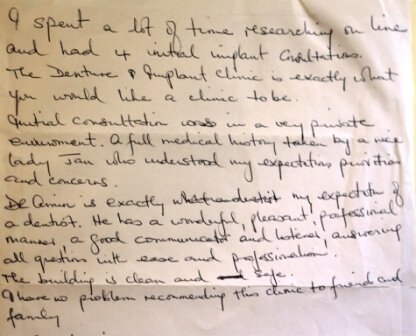 I spent a lot of time researching on line
and had 4 initial implant Consultations.
The Denture & Implant Clinic is exactly what
you would like a clinic to be.
Initial consultation was in a very private
enviroment. A full medical history taken by a nice
lady Jan who understood my expectations priorities
and concerns.
De is exactly my expectation of
a dentist. He has a wonderful, pleasant, professional
manner, a good communicator and listener, answering
all questions with ease and professionalism.
The building is clean and safe.
I have no problem recommending this clinic to friends and
family